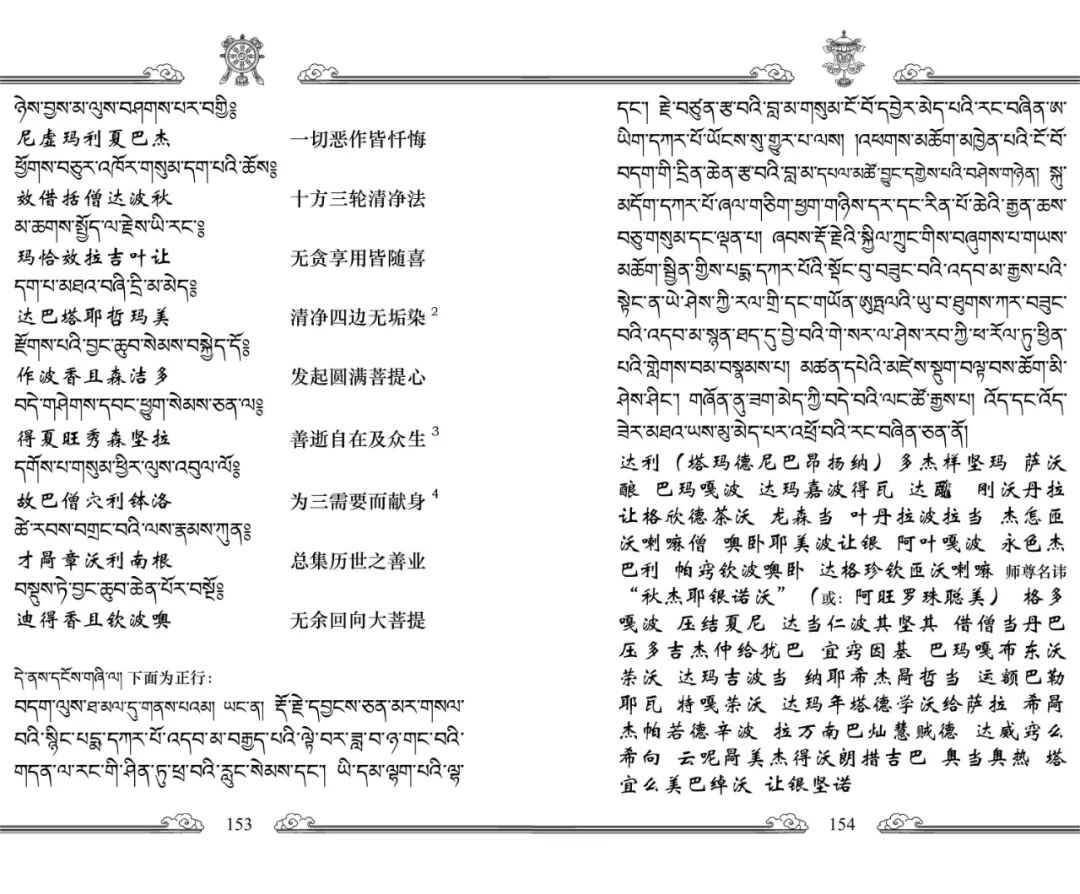 ཉེས་བྱས་མ་ལུས་བཤགས་པར་བགྱི༔
尼虚玛利夏巴杰 一切恶作皆忏悔
ཕྱོགས་བཅུར་འཁོར་གསུམ་དག་པའི་ཆོས༔
效借括僧达波秋 十方三轮清净法
མ་ཆགས་སྤྱོད་ལ་རྗེས་ཡི་རང་༔
玛恰效拉吉叶让 无贪享用皆随喜
དག་པ་མཐའ་བཞི་དྲི་མ་མེད༔
达巴塔耶哲玛美 清净四边无垢染 2
རྫོགས་པའི་བྱང་ཆུབ་སེམས་བསྐྱེད་དོ༔
作波香且森洁多 发起圆满菩提心
བདེ་གཤེགས་དབང་ཕྱུག་སེམས་ཅན་ལ༔
得夏旺秀森坚拉 善逝自在及众生 3
དགོས་པ་གསུམ་ཕྱིར་ལུས་འབུལ་ལོ༔
故巴僧穴利钵洛 为三需要而献身 4
ཚེ་རབས་བགྲང་བའི་ལས་རྣམས་ཀུན༔
才咼章沃利南根 总集历世之善业
བསྡུས་ཏེ་བྱང་ཆུབ་ཆེན་པོར་བསྔོ༔
迪得香且钦波噢 无余回向大菩提
དེ་ནས་དངོས་གཞི་ལ། 下面为正行：
བདག་ལུས་ཐ་མལ་དུ་གནས་པའམ། ཡང་ན། རྡོ་རྗེ་དབྱངས་ཅན་མར་གསལ་
བའི་སྙིང་པདྨ་དཀར་པོ་འདབ་མ་བརྒྱད་པའི་ལྟེ་བར་ཟླ་བ་ཉ་གང་བའི་
གདན་ལ་རང་གི་ཤིན་ཏུ་ཕྲ་བའི་རླུང་སེམས་དང་། ཡི་དམ་ལྷག་པའི་ལྷ་
153
དང་། རྗེ་བཙུན་རྩ་བའི་བླ་མ་གསུམ་ངོ་བོ་དབྱེར་མེད་པའི་རང་བཞིན་ཨ་
ཡིག་དཀར་པོ་ཡོངས་སུ་གྱུར་པ་ལས། །འཕགས་མཆོག་མཁྱེན་པའི་ངོ་བོ་
བདག་གི་དྲིན་ཆེན་རྩ་བའི་བླ་མ་དཔལ་མཚོ་བྱུང་དགྱེས་པའི་བཤེས་གཉེན། སྐུ་
མདོག་དཀར་པོ་ཞལ་གཅིག་ཕྱག་གཉིས་དར་དང་རིན་པོ་ཆེའི་རྒྱན་ཆས་
བཅུ་གསུམ་དང་ལྡན་པ། ཞབས་རྡོ་རྗེའི་སྐྱིལ་ཀྲུང་གིས་བཞུགས་པ་གཡས་
མཆོག་སྦྱིན་གྱིས་པདྨ་དཀར་པོའི་སྡོང་བུ་བཟུང་བའི་འདབ་མ་རྒྱས་པའི་
སྟེང་ན་ཡེ་ཤེས་ཀྱི་རལ་གྲི་དང་གཡོན་ཨུཏྤལའི་ཡུ་བ་ཐུགས་ཀར་བཟུང་
བའི་འདབ་མ་སྙན་ཐད་དུ་བྱེ་བའི་གེ་སར་ལ་ཤེས་རབ་ཀྱི་ཕ་རོལ་ཏུ་ཕྱིན་
པའི་གླེགས་བམ་བསྣམས་པ། མཚན་དཔེའི་མཛེས་སྡུག་བལྟ་བས་ཆོག་མི་
ཤེས་ཤིང་། གཞོན་ནུ་ཟག་མེད་ཀྱི་བདེ་བའི་ལང་ཚོ་རྒྱས་པ། འོད་དང་འོད་
ཟེར་མཐའ་ཡས་མུ་མེད་པར་འཕྲོ་བའི་རང་བཞིན་ཅན་ནོ།
达利（塔玛德尼巴昂扬纳）多杰样坚玛 萨沃
酿 巴玛嘎波 达玛嘉波得瓦 达 刚沃丹拉
让格欣德茶沃 龙森当 叶丹拉波拉当 杰怎匝
沃喇嘛僧 噢卧耶美波让银 阿叶嘎波 永色杰
巴利 帕窍钦波噢卧 达格珍钦匝沃喇嘛 师尊名讳
“秋杰耶银诺沃”（或：阿旺罗珠聪美） 格多
嘎波 压结夏尼 达当仁波其坚其 借僧当丹巴
压多吉杰仲给犹巴 宜窍因基 巴玛嘎布东沃
荣沃 达玛吉波当 纳耶希杰咼哲当 运额巴勒
耶瓦 特嘎荣沃 达玛年塔德学沃给萨拉 希咼
杰帕若德辛波 拉万南巴灿慧贼德 达威窍么
希向 云呢咼美杰得沃朗措吉巴 奥当奥热 塔
宜么美巴绰沃 让银坚诺
154